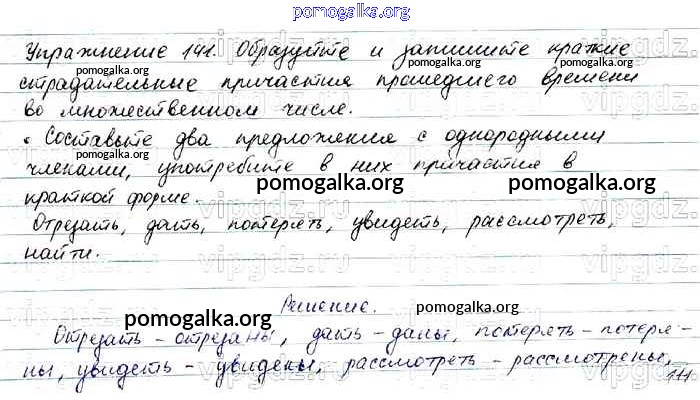 pomogalka.org
Упражнение 141. Образуйте и запишите краткие
pomogalka.org pomogalka.org
страдательные причастия прошедшего времени
во множественном числе.
• Составьте два предложения с однородными
pomogalka.org pomogalka.org
членами, употребите в них причастия в
краткой форме.
pomogalka.org pomogalka.org
Отрезать, дать, потерять, увидеть, рассмотреть,
найти.
vipgdz.ru
Решение.
pomogalka.org pomogalka.org
Отрезать - отрезаны, дать - даны, потерять - потеря-
ны, увидеть - увидены, рассмотреть - рассмотрены,
pomogalka.org pomogalka.org
111